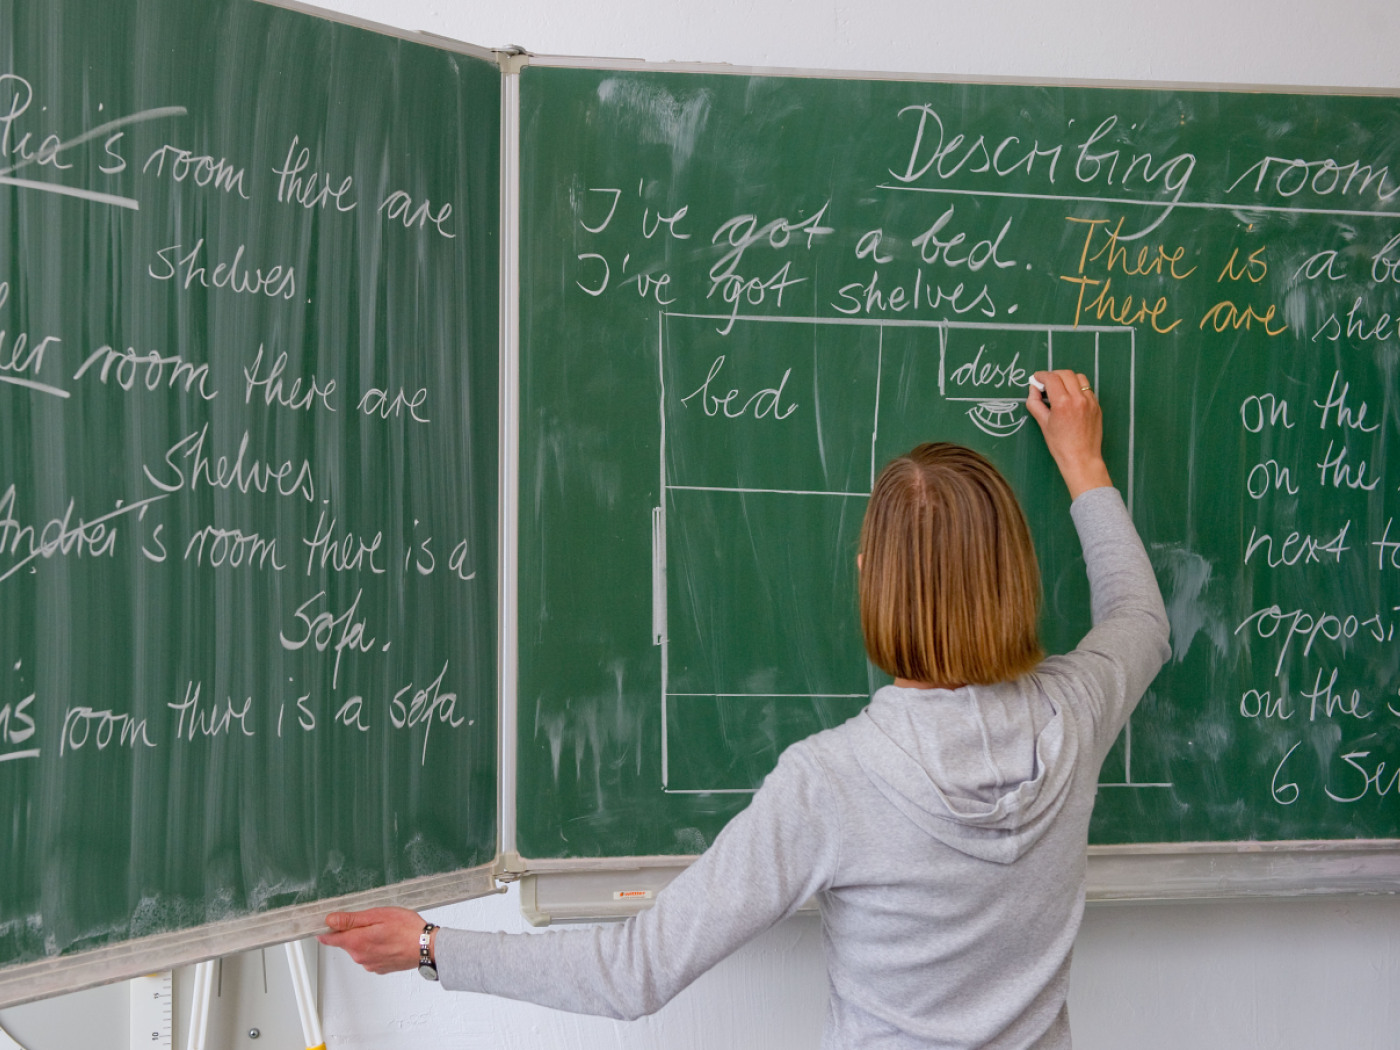 Pia's room there are
shelves.
her room there are
shelves.
Andrei's room there is a
sofa.
is room there is a sofa.
Describing room
I've got a bed. There is a
I've got shelves. There are she
bed
desk
on the
on the
next t
opposi
on the s
6 Se